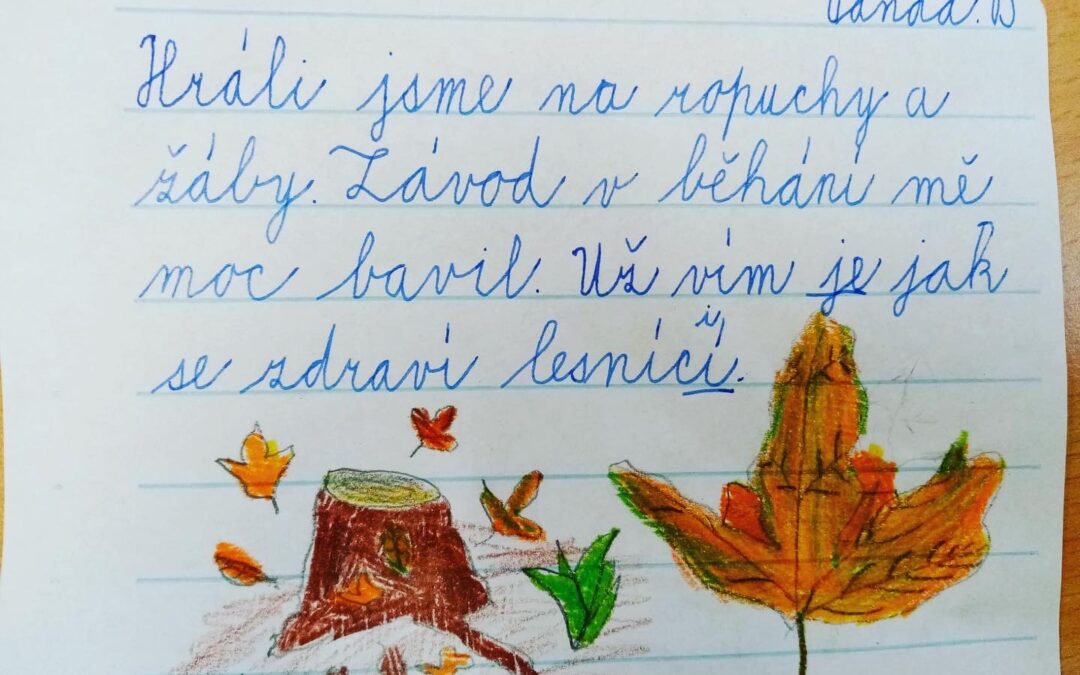 Vanda. B
Hráli jsme na ropuchy a
žáby. Závod v běhání mě
moc bavil. Už vím je jak
i
se zdraví lesníci.